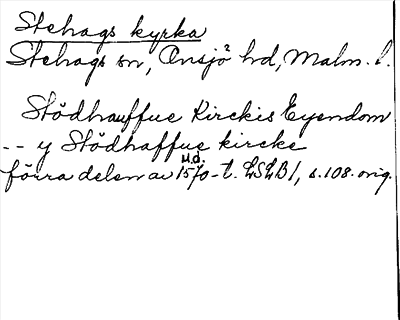 Stehags kyrka
Stehags sn, Onsjö hd, Malm. l.
Stödhauffue Kirckis Eyendom
-- y Stödhaffue kircke
u.d.
förra delen av 1570-t. LSLB1, s.108. orig.